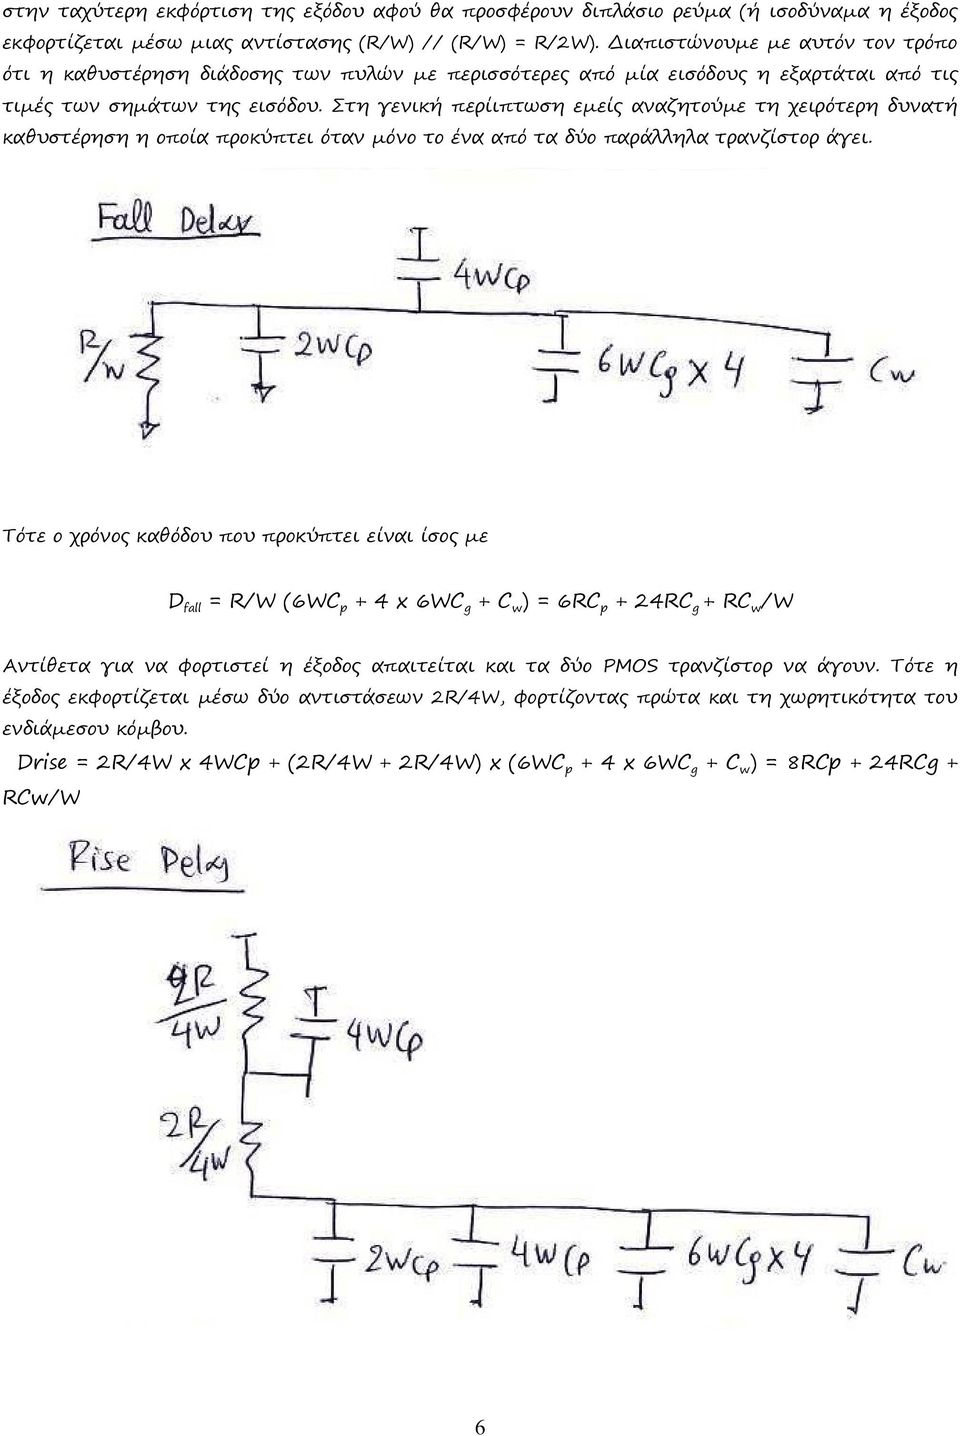 στην ταχύτερη εκφόρτιση της εξόδου αφού θα προσφέρουν διπλάσιο ρεύμα (ή ισοδύναμα η έξοδος
εκφορτίζεται μέσω μιας αντίστασης (R/W) // (R/W) = R/2W). Διαπιστώνουμε με αυτόν τον τρόπο
ότι η καθυστέρηση διάδοσης των πυλών με περισσότερες από μία εισόδους η εξαρτάται από τις
τιμές των σημάτων της εισόδου. Στη γενική περίιπτωση εμείς αναζητούμε τη χειρότερη δυνατή
καθυστέρηση η οποία προκύπτει όταν μόνο το ένα από τα δύο παράλληλα τρανζίστορ άγει.
Fall Delay
4WCp
R/W
2WCp
6WCg x 4
Cw
Τότε ο χρόνος καθόδου που προκύπτει είναι ίσος με
D fall = R/W (6WC p + 4 x 6WC g + C w) = 6RC p + 24RC g + RC w/W
Αντίθετα για να φορτιστεί η έξοδος απαιτείται και τα δύο PMOS τρανζίστορ να άγουν. Τότε η
έξοδος εκφορτίζεται μέσω δύο αντιστάσεων 2R/4W, φορτίζοντας πρώτα και τη χωρητικότητα του
ενδιάμεσου κόμβου.
Drise = 2R/4W x 4WCp + (2R/4W + 2R/4W) x (6WC p + 4 x 6WC g + C w) = 8RCp + 24RCg +
RCw/W
Rise Delay
2R/4W
4WCp
2R/4W
2WCp
4WCp
6WCg x 4
Cw
6